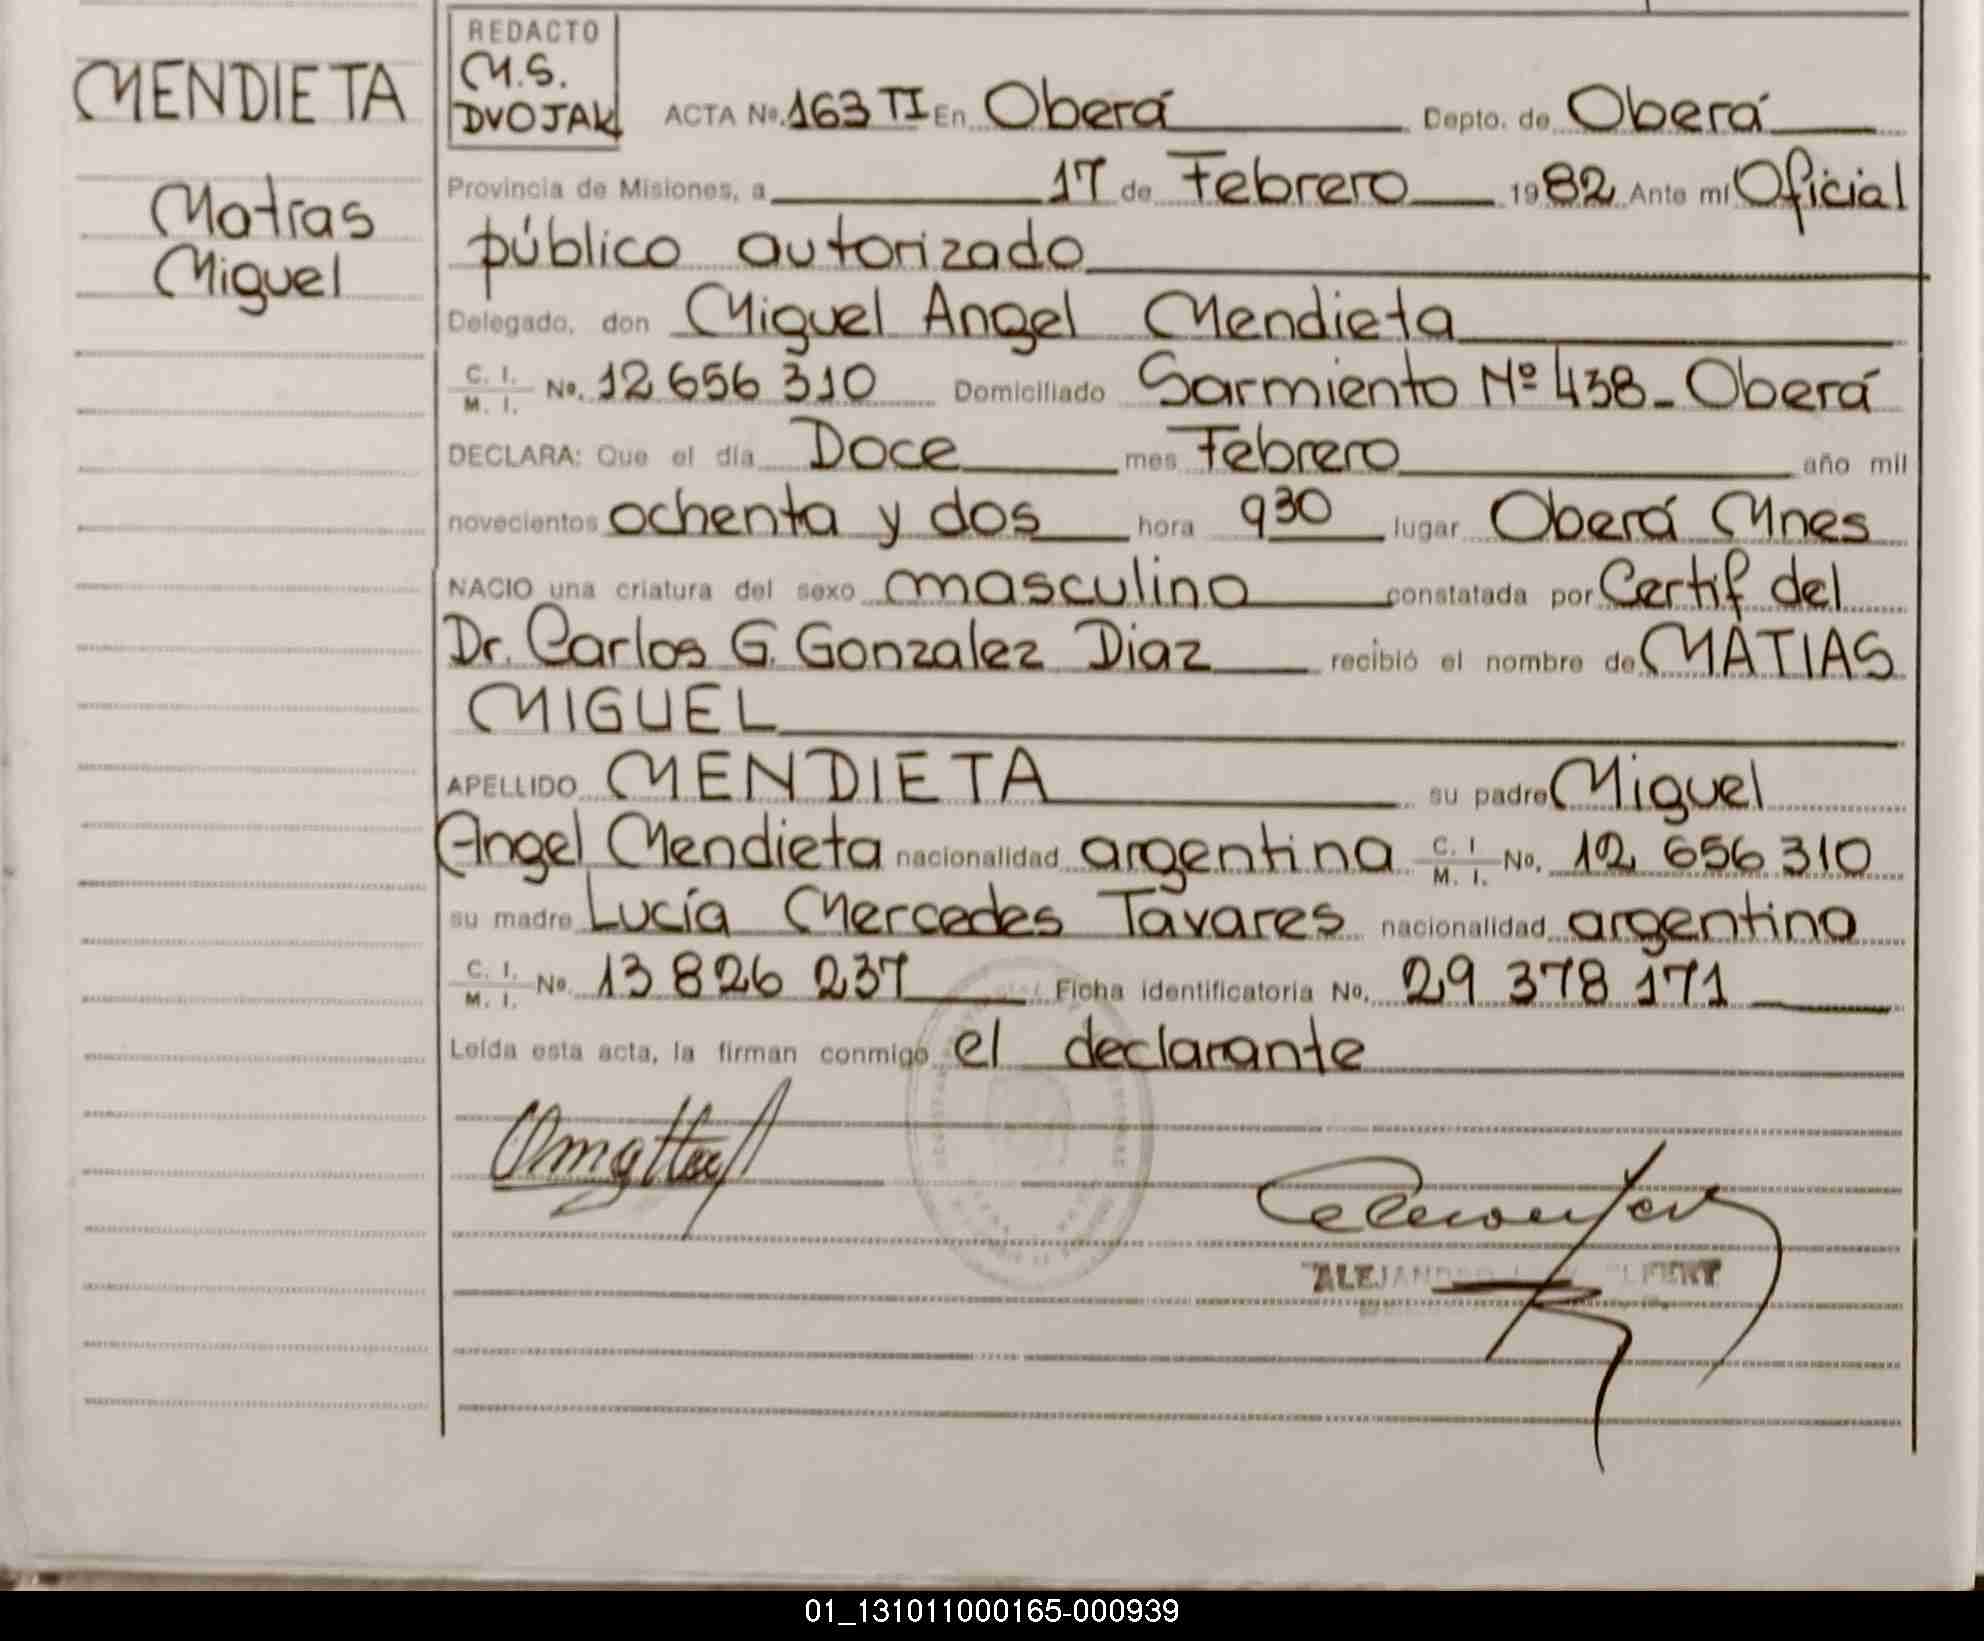 MENDIETA
Matías
Miguel
REDACTO
M.S.
DVOJAK
ACTA No. 163 TI En Oberá Depto. de Oberá
Provincia de Misiones, a 17 de Febrero 1982 Ante mí Oficial
público autorizado
Delegado, don Miguel Angel Mendieta
C. I. M. I. No. 12 656 310 Domiciliado Sarmiento Nº 438 - Oberá
DECLARA: Que el día Doce mes Febrero año mil
novecientos ochenta y dos hora 930 lugar Oberá Mnes
NACIO una criatura del sexo masculino constatada por Certif del
Dr. Carlos G. Gonzalez Diaz recibió el nombre de MATIAS
MIGUEL
APELLIDO MENDIETA su padre Miguel
Angel Mendieta nacionalidad argentina C. I. M. I. No. 12 656 310
su madre Lucía Mercedes Tavares nacionalidad argentina
C. I. M. I. No. 13 826 237 Ficha identificatoria No. 29 378 171
Leída esta acta, la firman conmigo el declarante
01_131011000165-000939